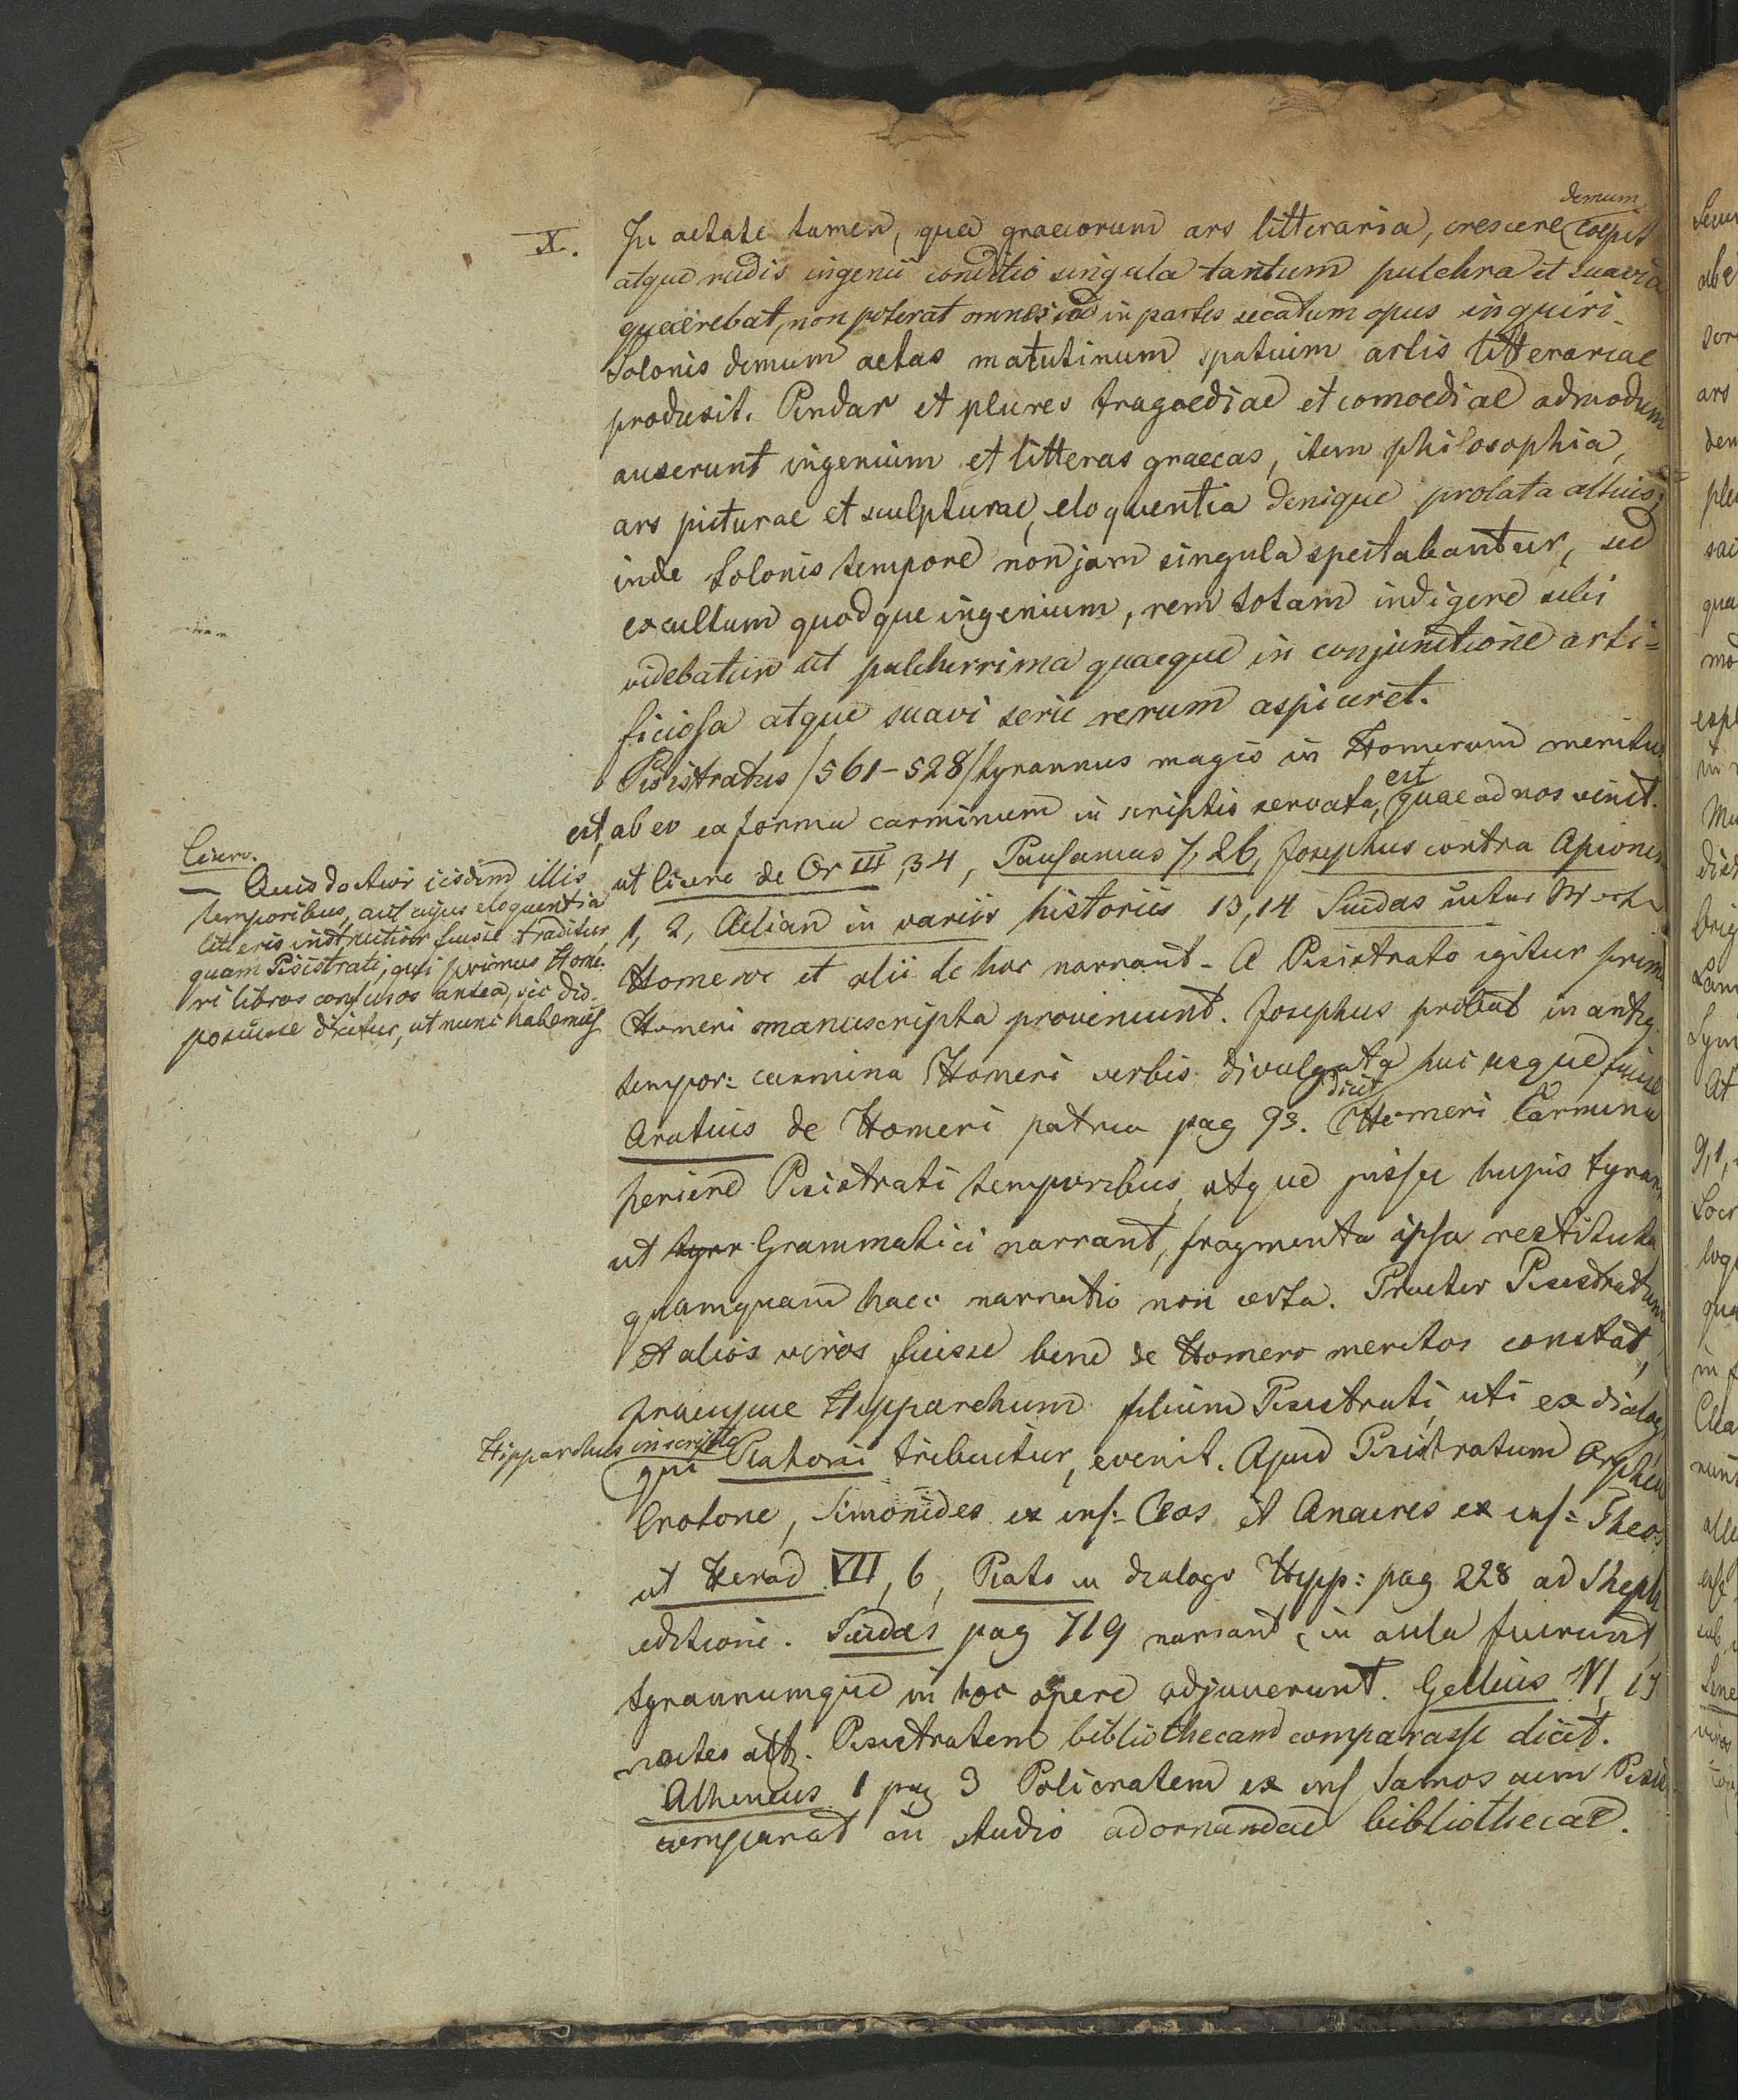 X.
demum
In aetate tamen, qua graecorum ars litteraria, crescere coepit
atque rudis ingenii conditio singula tantum pulchra et suavia
quaerebat, non poterat omnes in partes secatum opus inquiri.
Solonis demum aetas matutinum spatium artis litterariae
produxit. Pindar et plures tragoediae et comoediae admodum
auxerunt ingenium et litteras graecas, item philosophia,
ars picturae et sculpturae, eloquentia denique prolata altius;
inde Solonis tempore non jam singula spectabantur, sed
excultum quodque ingenium, rem totam indigere sibi
videbatur ut pulcherrima quaeque in conjunctione arti=
ficiosa atque suavi serie rerum aspiceret.
Pisistratus /561-528/ tyrannus magis in Homerum meritus
est, ab eo ea forma carminum in scriptis servata, est quae ad nos venit.
ut Cicero de Or III, 34, Pausanias 7, 26, Josephus contra Apionem
1, 2, Aelian in variis historiis 13, 14 Suidas
Homeros et alii de hoc narrant. A Pisistrato igitur prima
Homeri manuscripta proveniunt. Josephus probat in antiq.
tempor: carmina Homeri verbis divulgata huc usque fuisse
Aratius de Homeri patria pag 93. dicit Homeri Carmina
periere Pisistrati temporibus, atque jussu hujus tyrann
ut tyrr Grammatici narrant, fragmenta ipsa restituta,
quamquam haec narratio non certa. Praeter Pisistratum
et alios viros fuisse bene de Homero meritos constat,
Hipparchum filium Pisistrati, uti ex dialog
Hipparchus inscripto
qui Platoni tribuitur, evenit. Apud Pisistratum Orpheus
Crotone, Simonides ex ins: Ceos et Anacres ex ins: Theos
ut Herod VII, 6, Plato in dialogo Hipp: pag 228 ad Steph
editione. Suidas pag 719 narrant, in aula fuerunt,
tyrannumque in hoc opere adjuverunt. Gellius VI, 17
noctes att. Pisistratem bibliothecam comparasse dicit.
Atheneus 1 pag 3 Policratem ex ins Samos cum Pisis
comparat in studio adornandae bibliothecae.
Cicero.
— Quis doctior iisdem illis
temporibus, aut cujus eloquentia
litteris instructior fuisse traditur,
quam Pisistrati, qui primus Home-
ri libros confusos antea, sic dis-
posuisse dicitur, ut nunc habemus